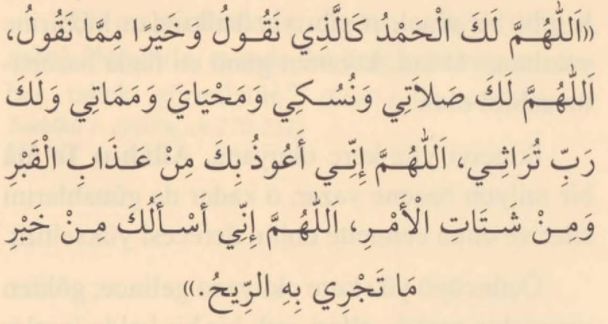 «اَللّٰهُمَّ لَكَ الْحَمْدُ كَالَّذِي نَقُولُ وَخَيْرًا مِمَّا نَقُولُ،
اَللّٰهُمَّ لَكَ صَلاَتِي وَنُسُكِي وَمَحْيَايَ وَمَمَاتِي وَلَكَ
رَبِّ تُرَاثِي، اَللّٰهُمَّ إِنِّي أَعُوذُ بِكَ مِنْ عَذَابِ الْقَبْرِ
وَمِنْ شَتَاتِ الْأَمْرِ، اَللّٰهُمَّ إِنِي أَسْأَلُكَ مِنْ خَيْرِ
مَا تَجْرِي بِهِ الرِّيحُ.»